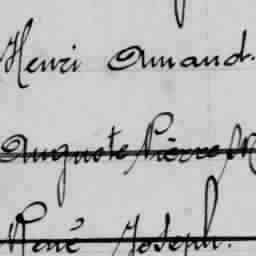 Henri Amand.
Auguste Pierre M
René Joseph.